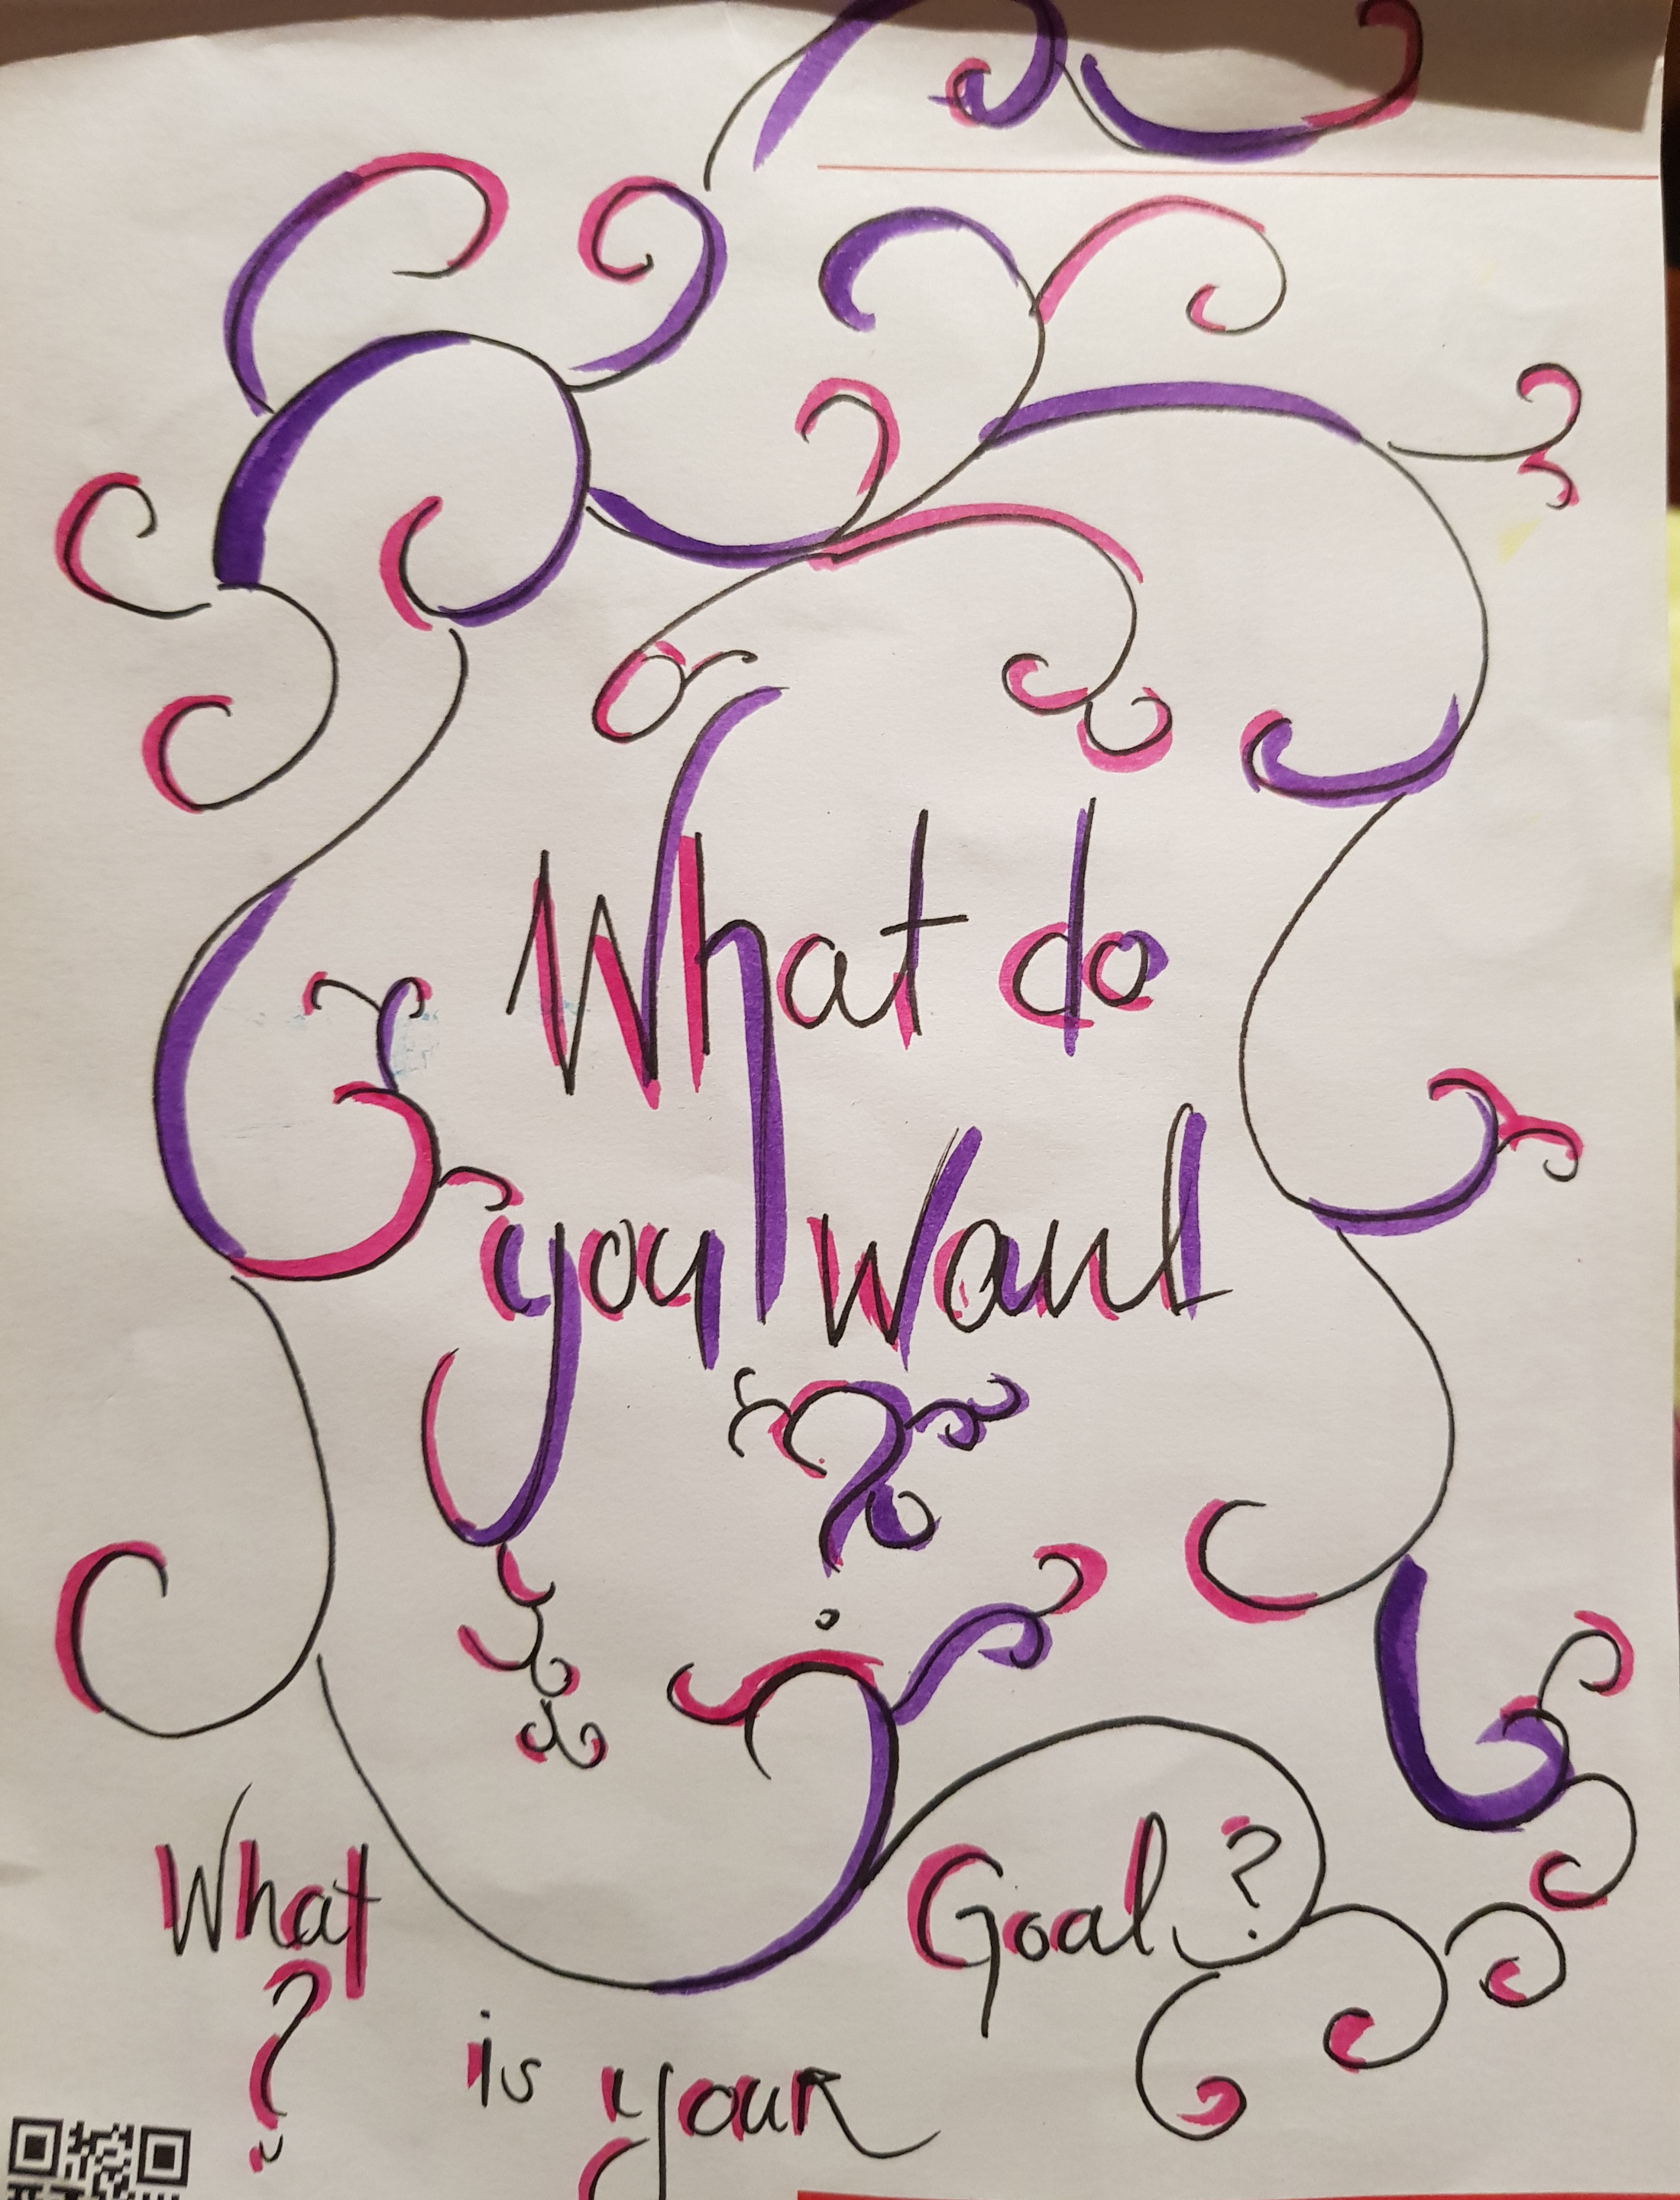 What do
you want
?
What Goal ?
?
is your